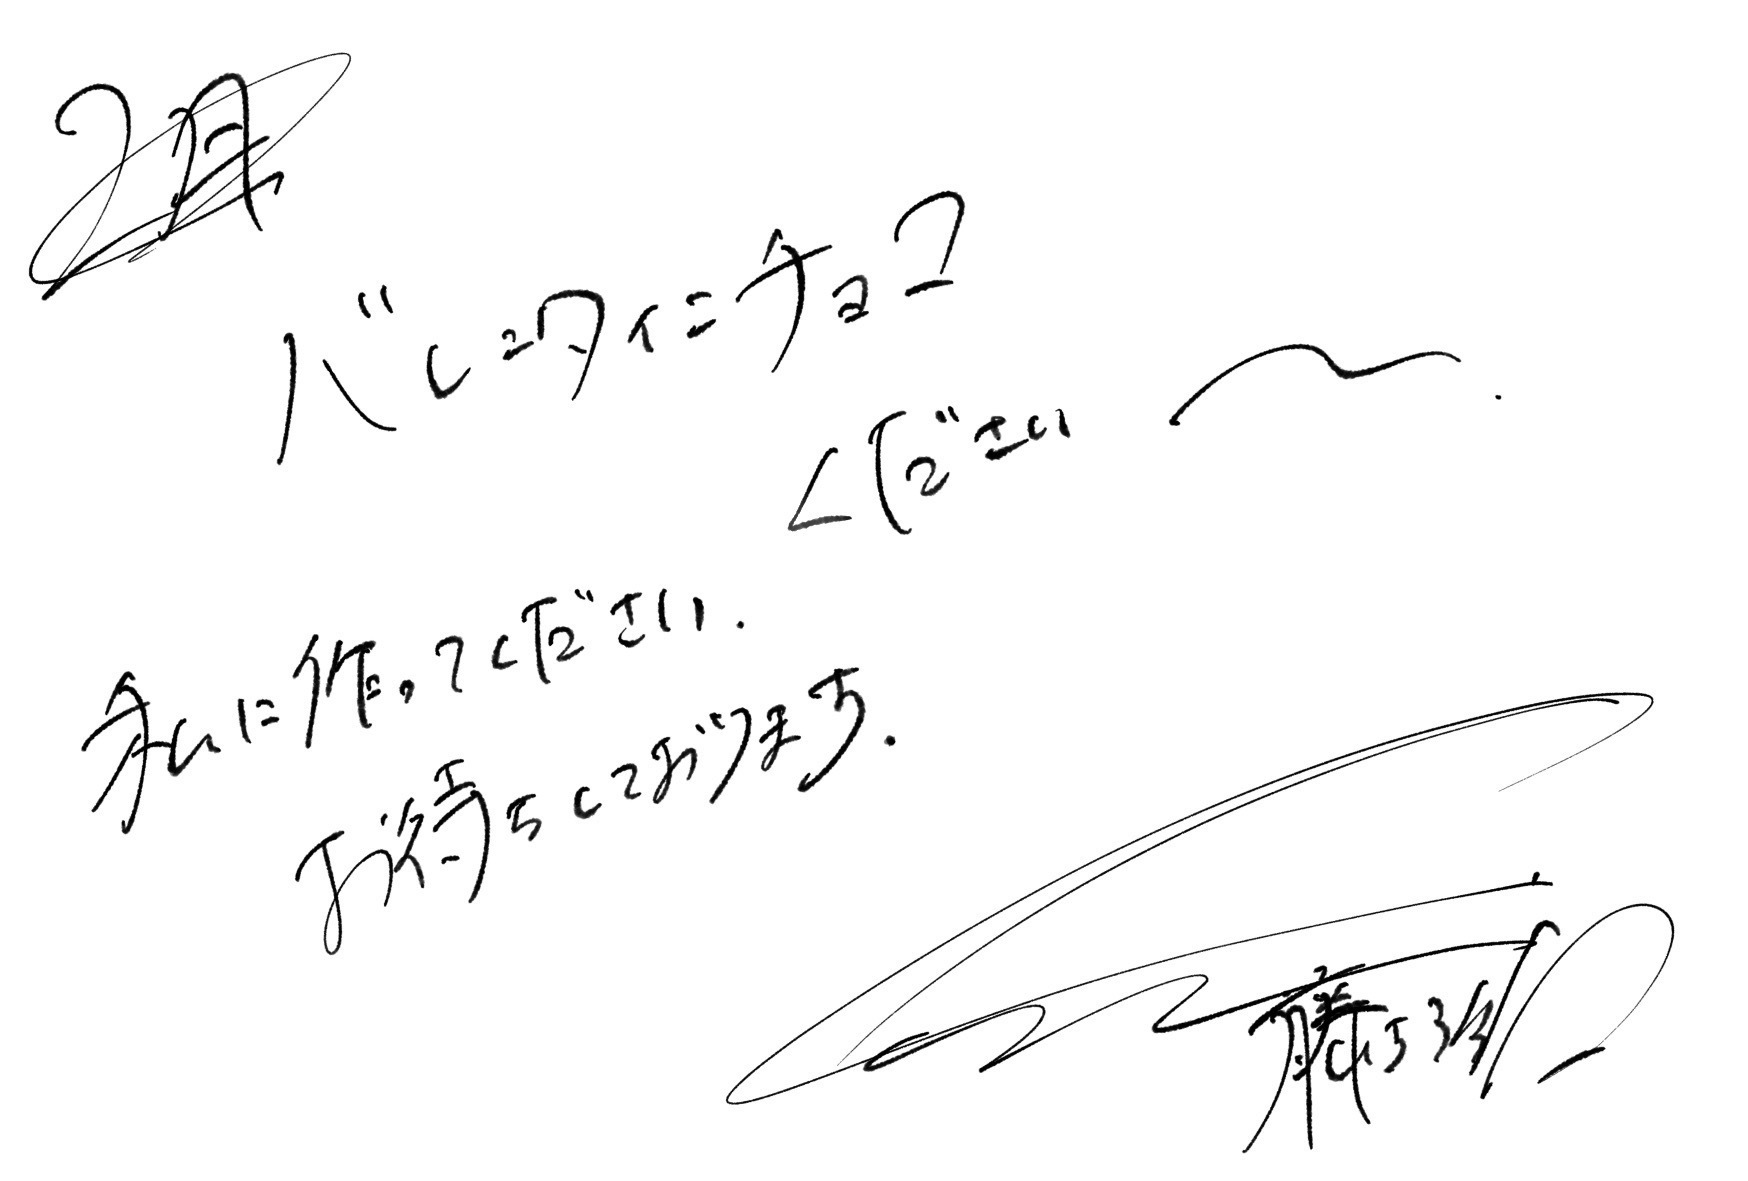 2月
バレンタインチョコ
ください〜.
私に作ってください.
お待ちしております.